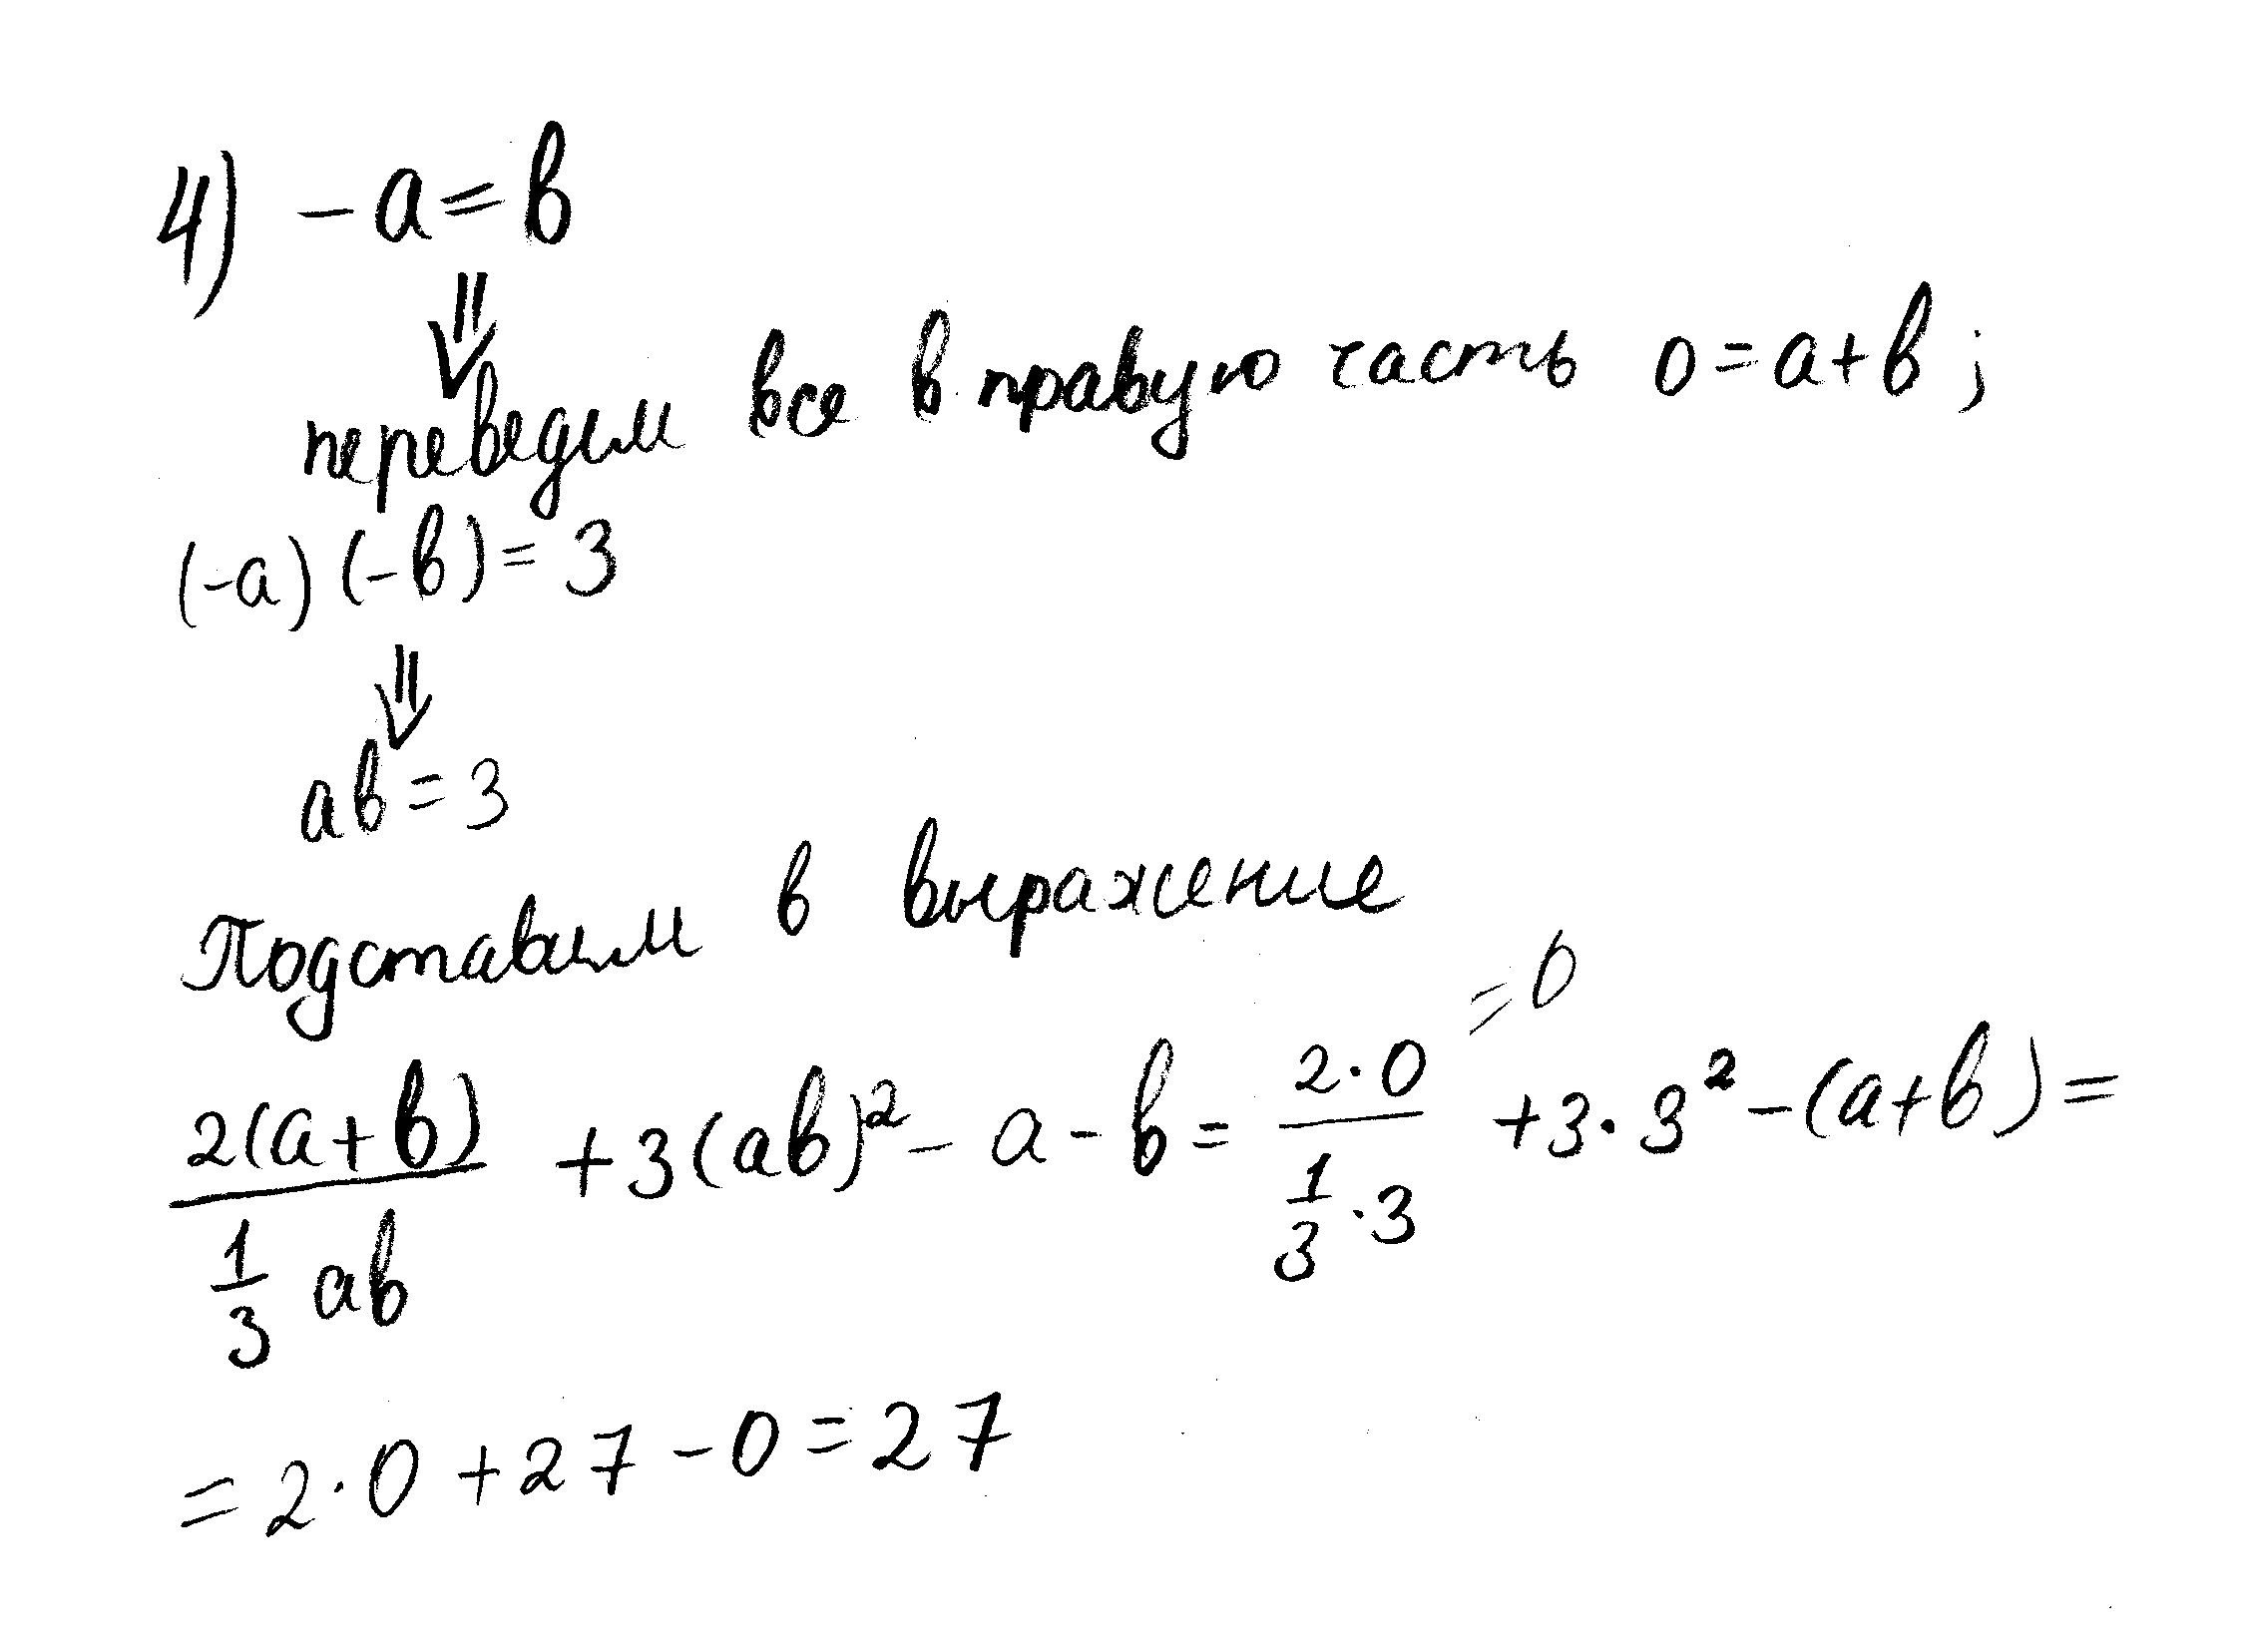 4) -a=b
переведем все в правую часть 0=a+b;
(-a)(-b)=3
ab=3
Подставим в выражение
=0
2(a+b)/(1/3 ab) + 3(ab)² - a - b = 2·0/(1/3·3) + 3·3² - (a+b) =
= 2·0 + 27 - 0 = 27